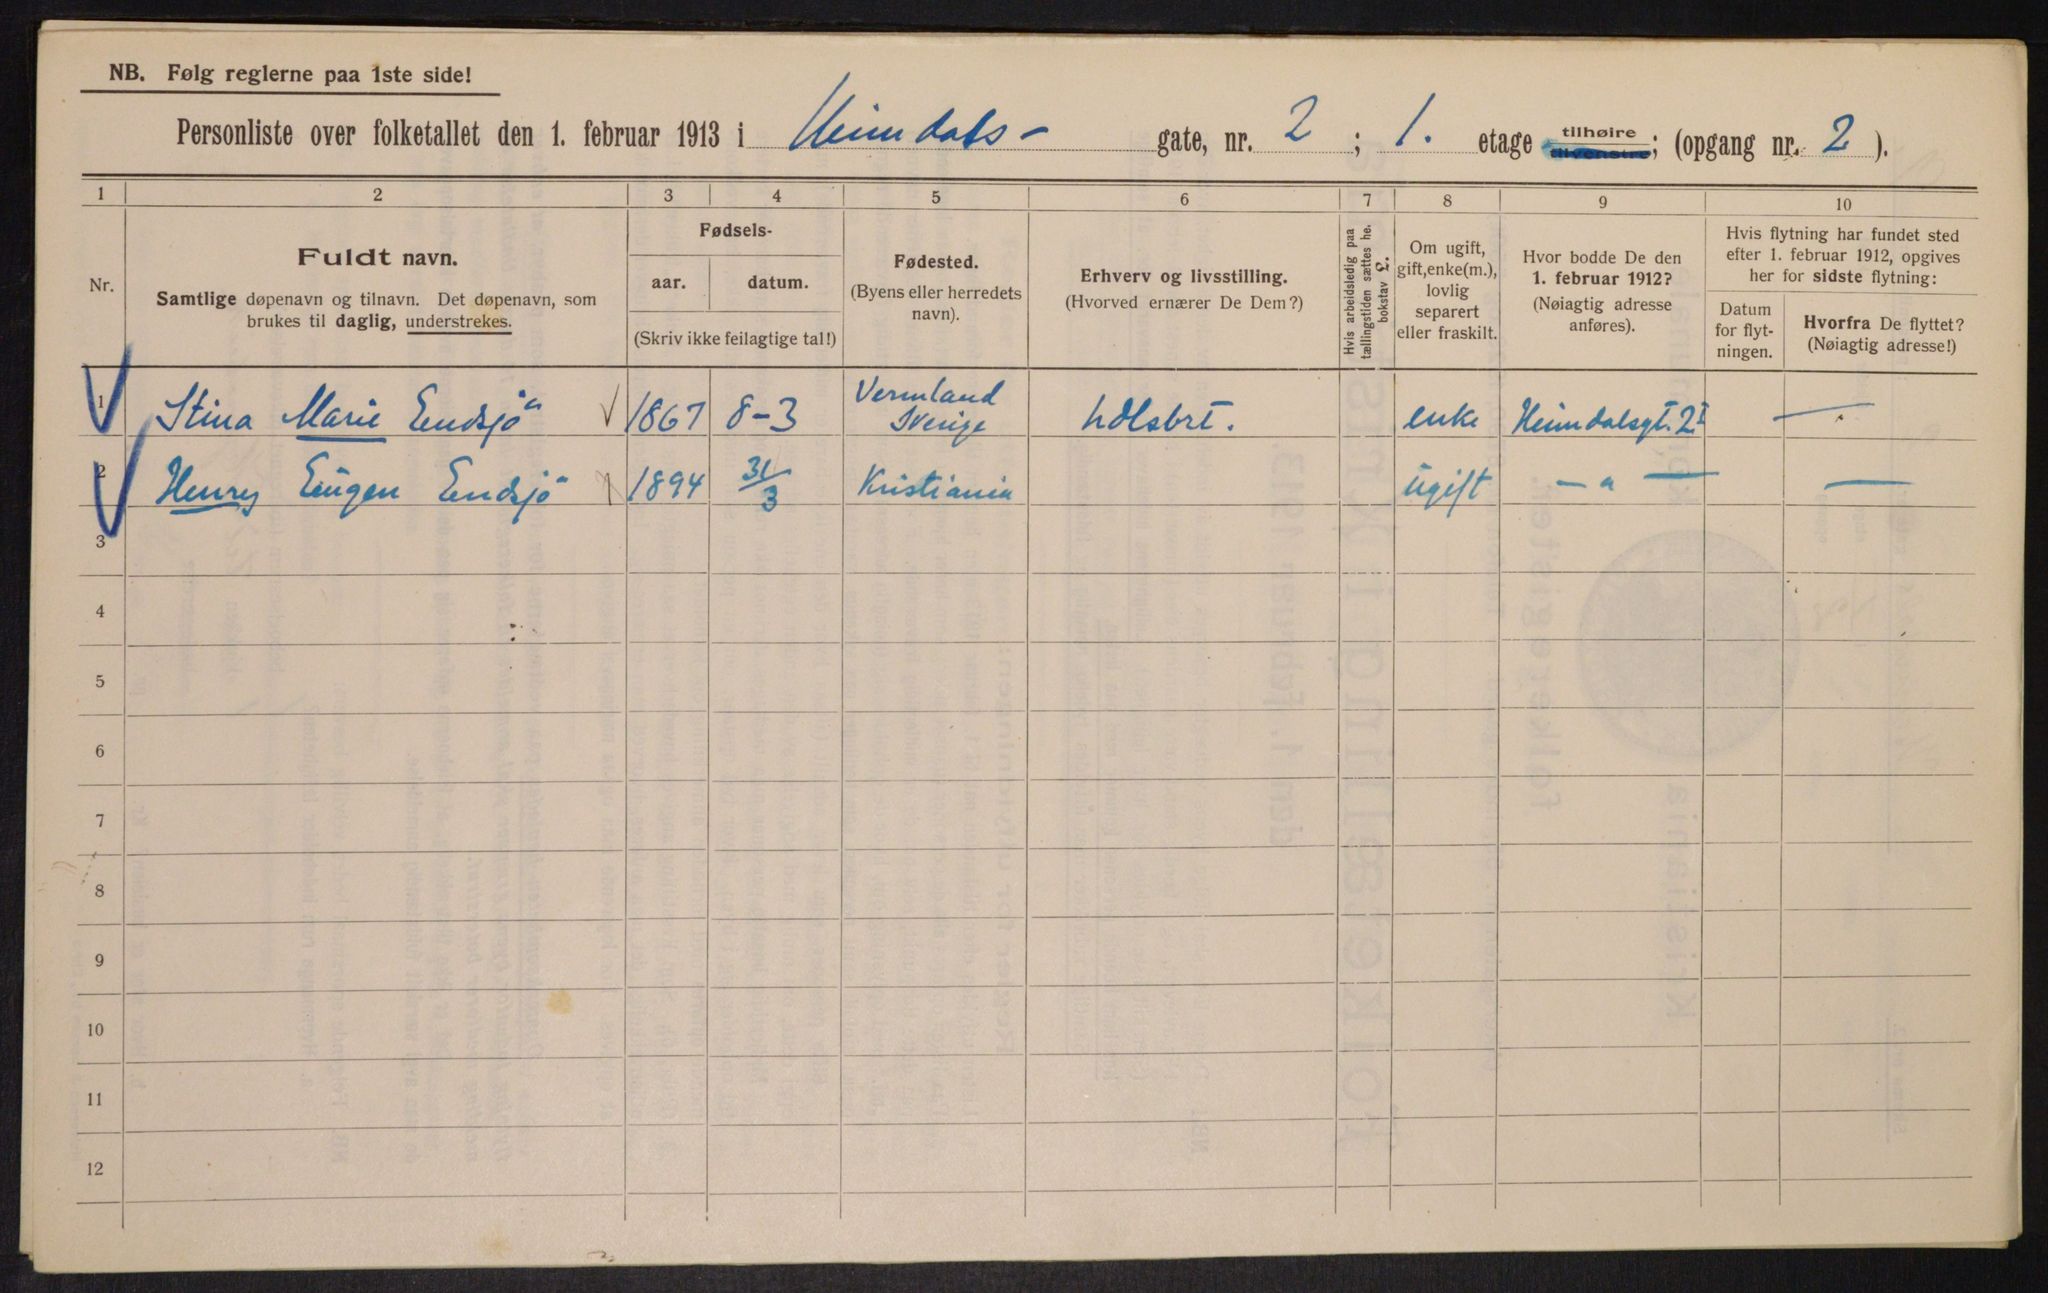 NB. Følg reglerne paa 1ste side!
Personliste over folketallet den 1. februar 1913 i Heimdals- gate, nr. 2; 1. etage tilhøire tilvenstre; (opgang nr. 2).
1 2 3 4 5 6 7 8 9 10
Nr.
Fuldt navn.
Samtlige døpenavn og tilnavn. Det døpenavn, som
brukes til daglig, understrekes.
Fødsels-
aar. datum.
(Skriv ikke feilagtige tal!)
Fødested.
(Byens eller herredets
navn).
Erhverv og livsstilling.
(Hvorved ernærer De Dem?)
Hvis arbeidsledig paa
tællingstiden sættes he.
bokstav L.
Om ugift,
gift, enke(m.),
lovlig
separert
eller fraskilt.
Hvor bodde De den
1. februar 1912?
(Nøiagtig adresse
anføres).
Hvis flytning har fundet sted
efter 1. februar 1912, opgives
her for sidste flytning:
Datum
for flyt-
ningen.
Hvorfra De flyttet?
(Nøiagtig adresse!)
1 Stina Marie Endsjö 1867 8-3 Vermland Sverige enke Heimdalsgt. 2 I —
2 Henry Eugen Endsjö 1894 31/3 Kristiania ugift — " — —
3
4
5
6
7
8
9
10
11
12